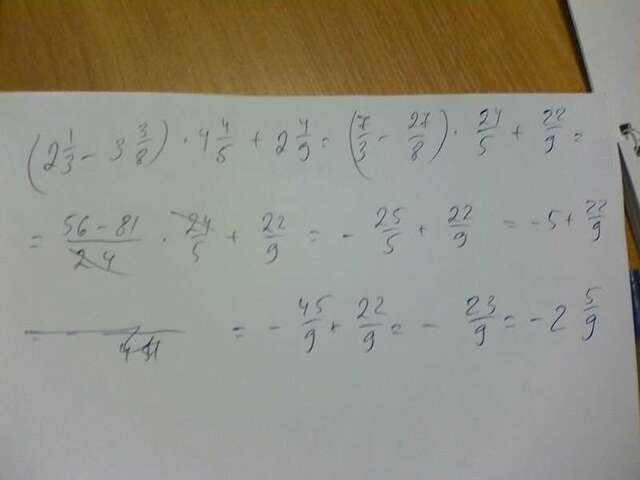 (2 1/3 - 3 3/8) · 4 4/5 + 2 4/9 = (7/3 - 27/8) · 24/5 + 22/9 =
= 56-81/24 · 24/5 + 22/9 = - 25/5 + 22/9 = -5 + 22/9
= - 45/9 + 22/9 = - 23/9 = - 2 5/9